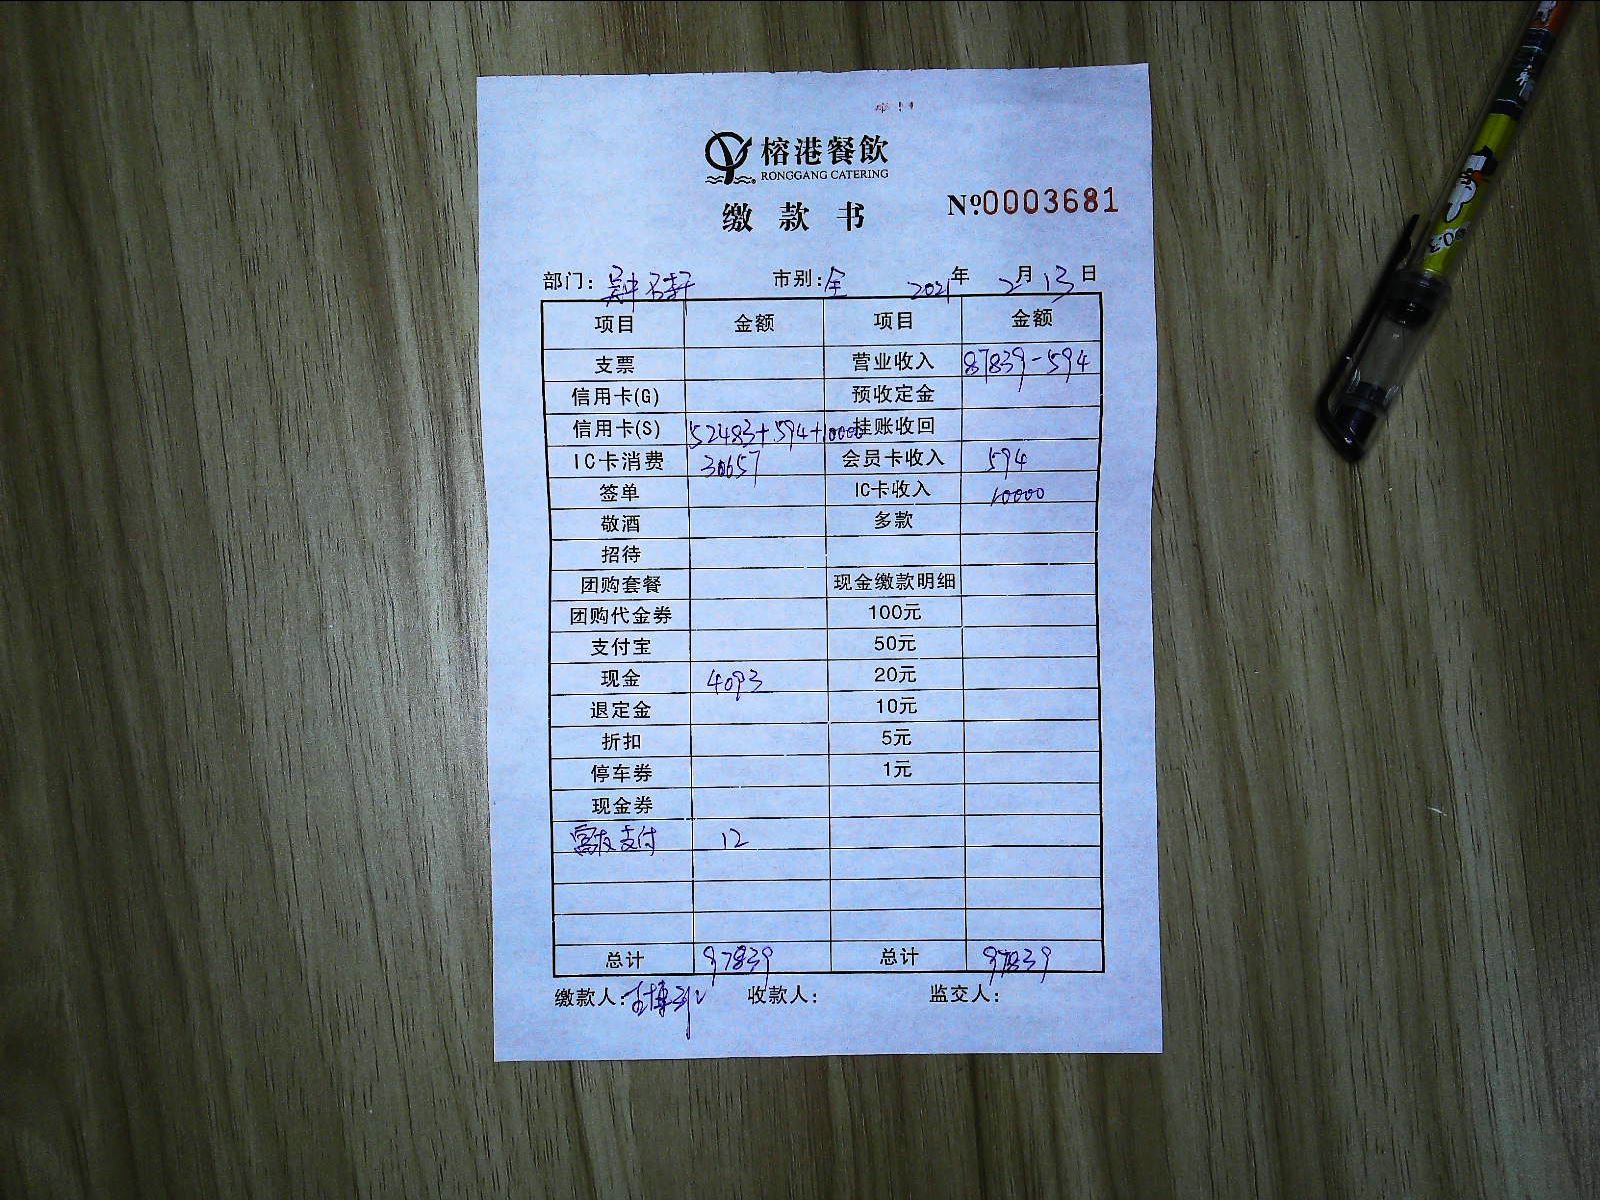 榕港餐飲
RONGGANG CATERING
缴款书
№0003681
部门: 吴中 市别: 全 2021年 2月 13日
项目 金额 项目 金额
支票 营业收入 87839-594
信用卡(G) 预收定金
信用卡(S) 52483+594+10000 挂账收回
IC卡消费 30657 会员卡收入 594
签单 IC卡收入 10000
敬酒 多款
招待
团购套餐 现金缴款明细
团购代金券 100元
支付宝 50元
现金 4093 20元
退定金 10元
折扣 5元
停车券 1元
现金券
富友支付 12
总计 97839 总计 97839
缴款人: 收款人: 监交人: